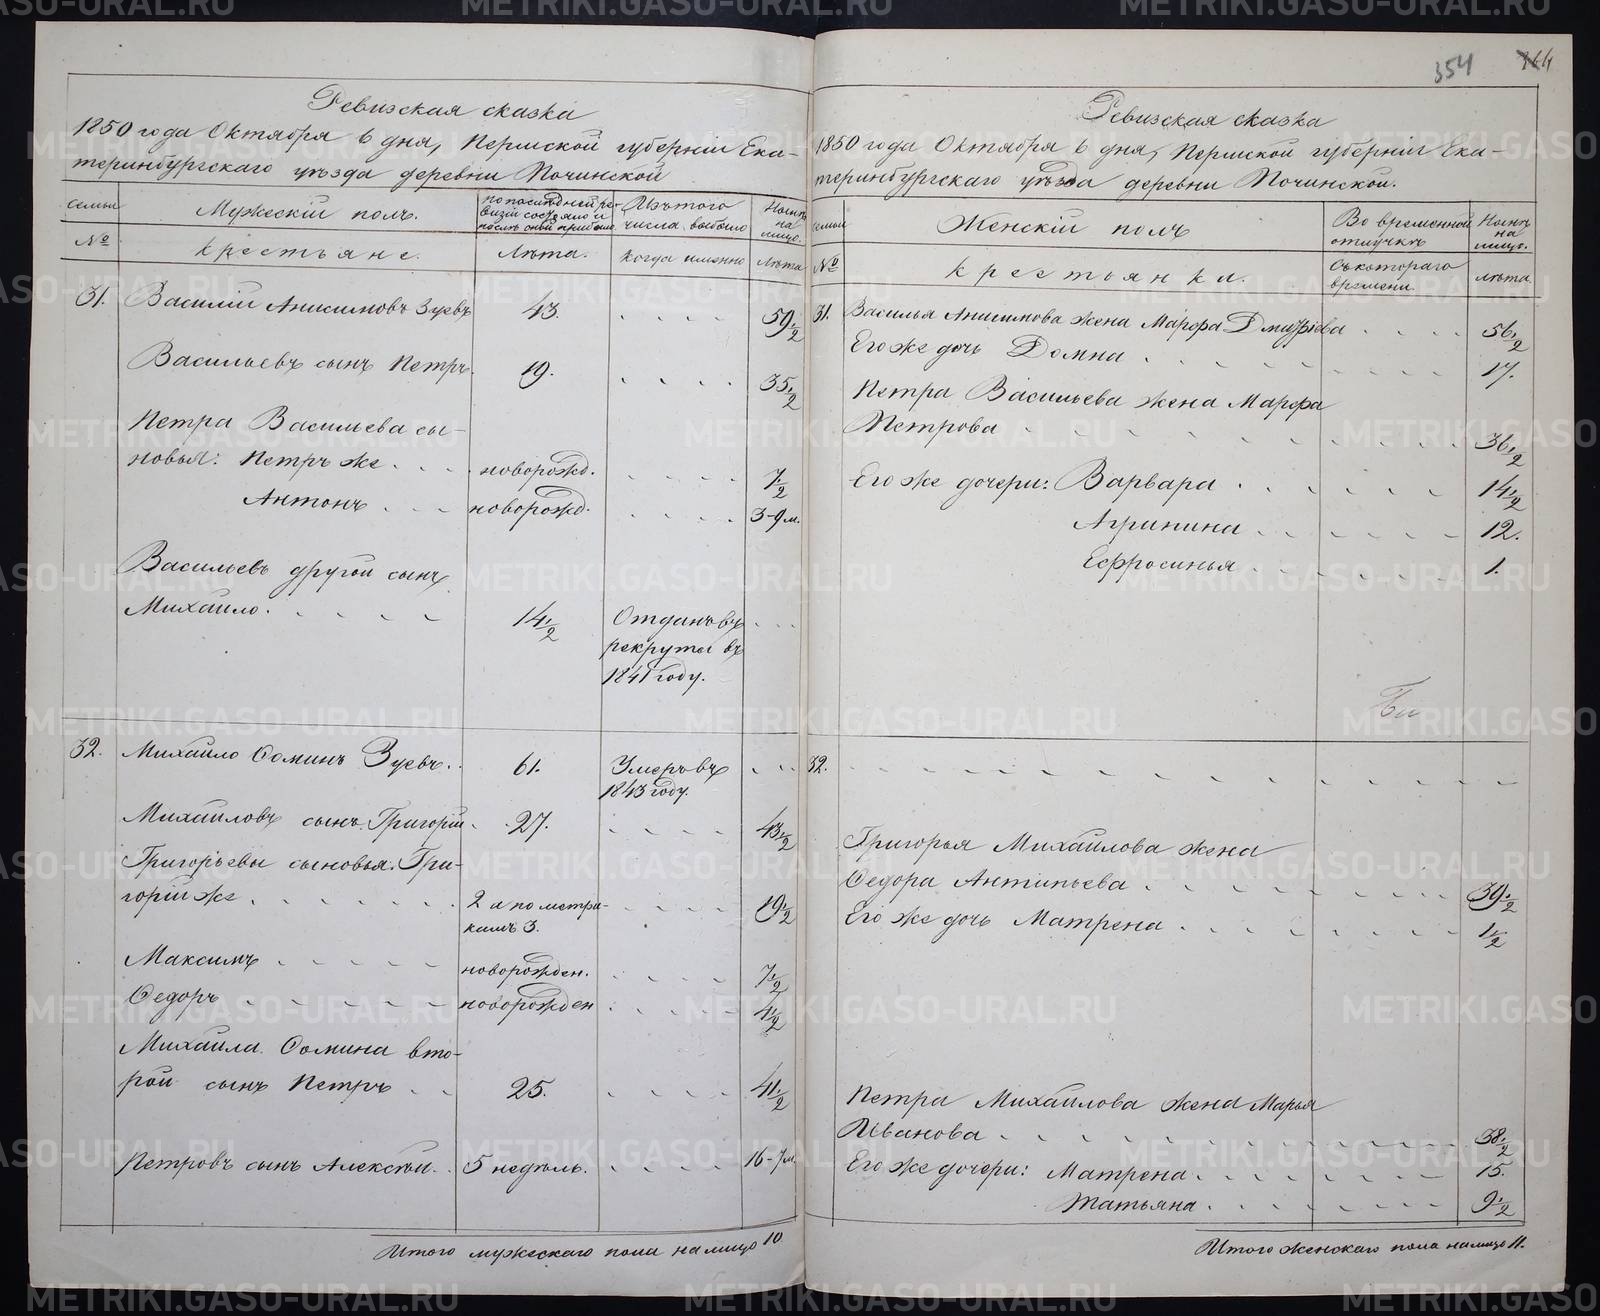 354 144
Ревизская сказка
1850 года Октября 6 дня, Пермской губернiи Ека-
теринбургскаго уѣзда деревни Починской
семьи
Мужескiй полъ.
по последней ре-
визiи состояло и
послѣ оной прибыло.
Изъ того
числа выбыло
Нынѣ
на
лицо.
№
крестьяне.
Лѣта.
когда именно
Лѣта
31. Василiй Анисимовъ Зуевъ 43. 59 1/2
Васильевъ сынъ Петръ 19. 35 1/2
Петра Васильева сы-
новья: Петръ же новорожд. 7 1/2
Антонъ новорожд. 3-9 м.
Васильевъ другой сынъ
Михайло. 14 1/2 Отданъ въ
рекруты въ
1841 году.
32. Михайло Ѳоминъ Зуевъ. 61. Умеръ въ
1843 году.
Михайловъ сынъ Григорiй 27. 43 1/2
Григорьевы сыновья: Гри-
горiй же 2 а по метри- 19 1/2
камъ 3.
Максимъ новорожден. 7 1/2
Ѳедоръ новорожден 4 1/2
Михайла Ѳомина вто-
рой сынъ Петръ 25. 41 1/2
Петровъ сынъ Алексѣй 5 недѣль. 16-7 м.
Итого мужескаго пола на лицо 10
Ревизская сказка
1850 года Октября 6 дня, Пермской губернiи Ека-
теринбургскаго уѣзда деревни Починской.
семьи
Женскiй полъ
Во временной
отлучкѣ
Нынѣ
на
лицо.
№
крестьянки.
Съ котораго
времени.
лѣта
31. Василья Анисимова жена Марфа Дмитрiева 56 1/2
Его же дочь Домна 17.
Петра Васильева жена Марфа
Петрова 36 1/2
Его же дочери: Варвара 14 1/2
Агрипина 12.
Ефросинья 1.
32.
Григорья Михайлова жена
Ѳедора Антипьева 39 1/2
Его же дочь Матрена 1 1/2
Петра Михайлова жена Марья
Иванова 38 1/2
Его же дочери: Матрена 15.
Татьяна 9 1/2
Итого женскаго пола на лицо 11.
METRIKI.GASO-URAL.RU